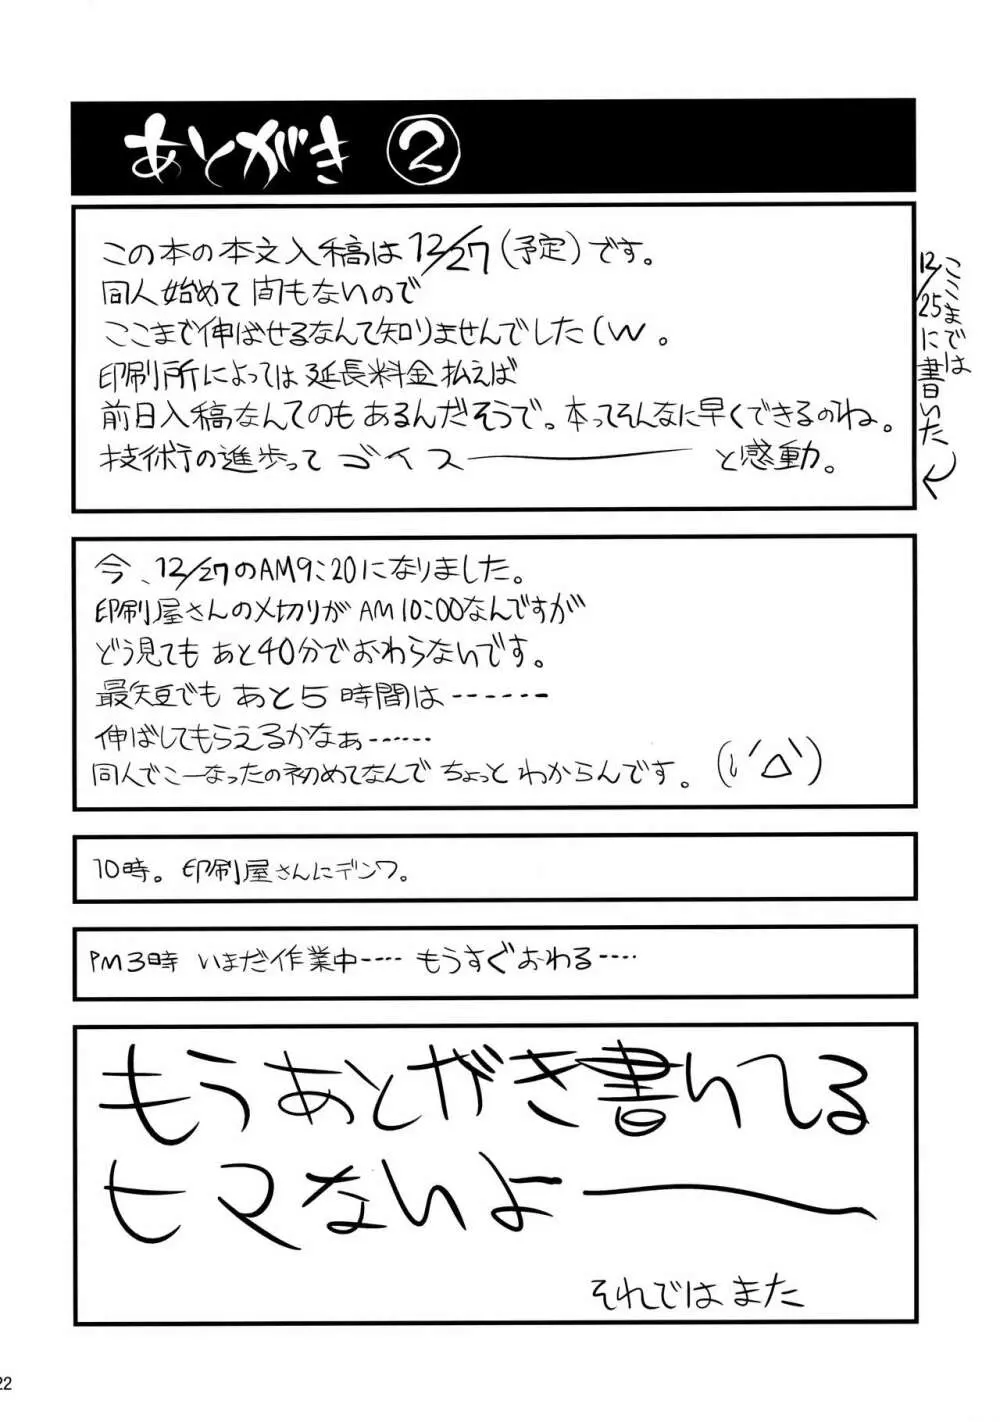 あとがき ②
この本の本文入稿は12/27(予定)です。
同人始めて間もないので
ここまで伸ばせるなんて知りませんでした(w。
印刷所によっては延長料金払えば
前日入稿なんてのもあるんだそうで。本ってそんなに早くできるのね。
技術庁の進歩って ゴイスー と感動。
ここまでは
12/25に書いた
今、12/27のAM9:20になりました。
印刷屋さんの〆切りがAM10:00なんですが
どう見てもあと40分でおわらないです。
最短でもあと5時間は------
伸ばしてもらえるかなぁ------
同人でこーなったの初めてなんでちょっとわからんです。(ι´Δ`)
10時。印刷屋さんにデンワ。
PM3時 いまだ作業中---- もうすぐおわる----
もうあとがき書いてる
ヒマないよー
それではまた
22